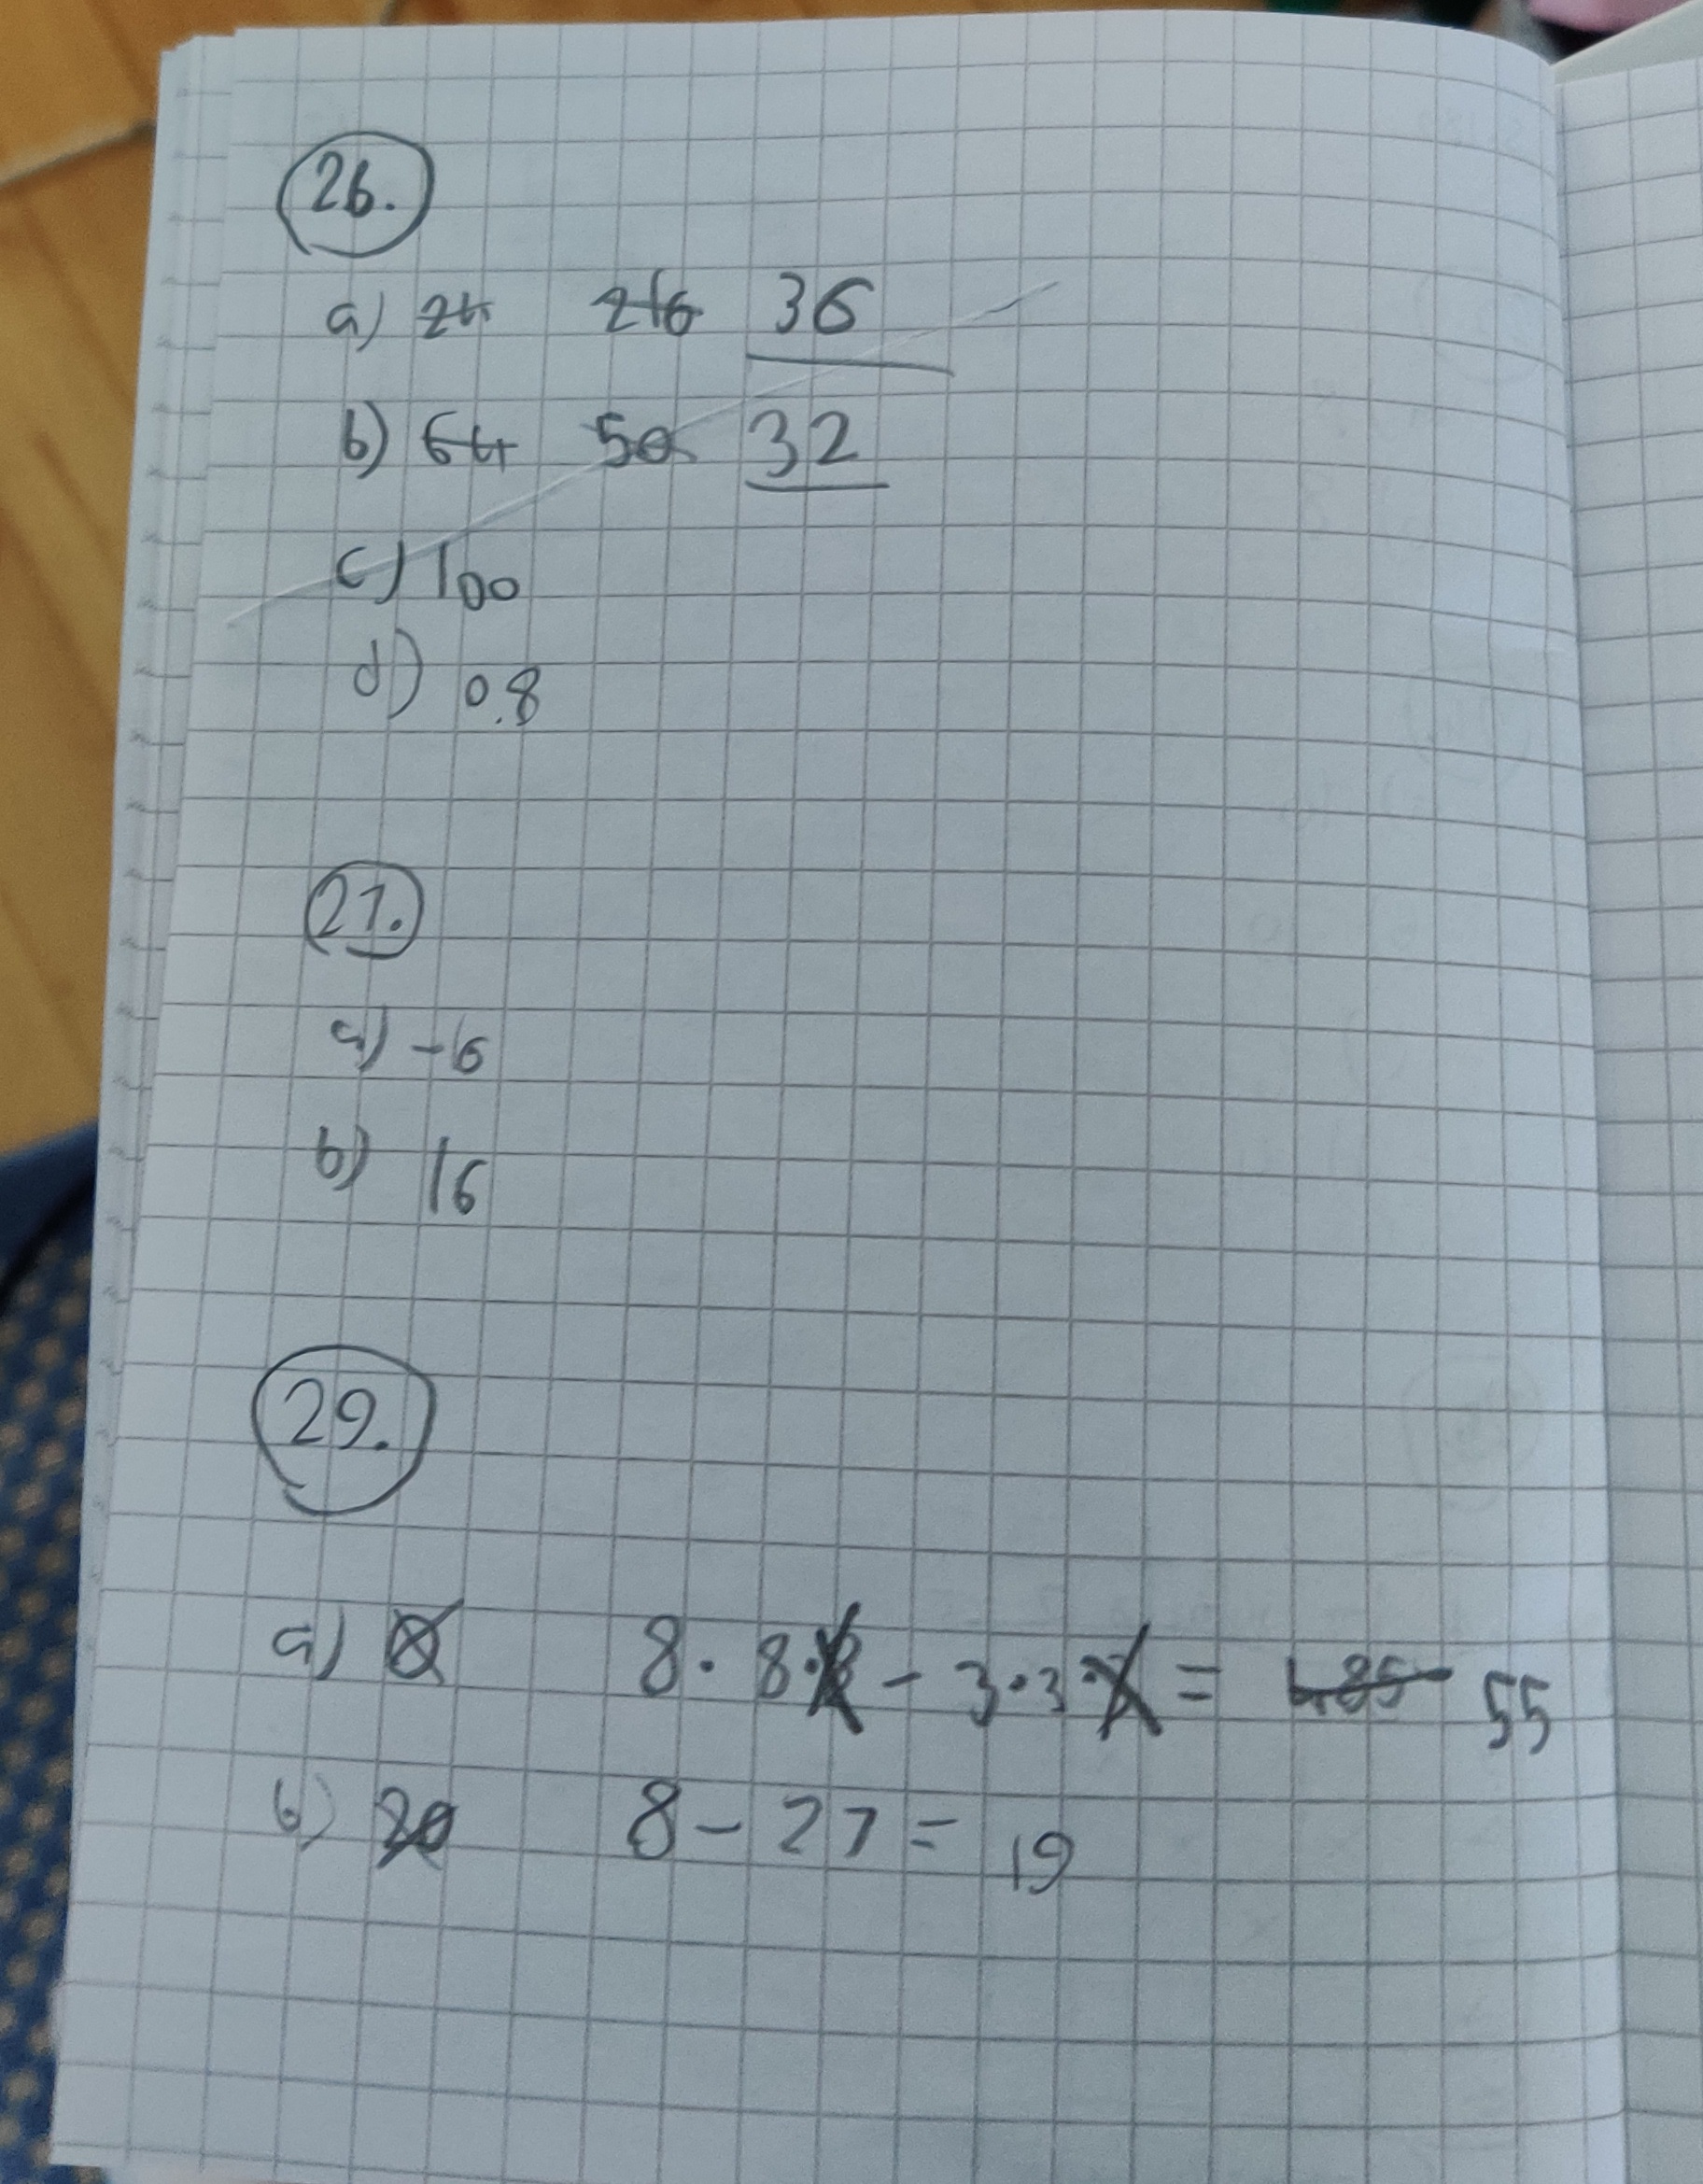 26.
a) 24 216 36
b) 64 50 32
c) 100
d) 0.8
27.
a) -6
b) 16
29.
a) 8 · 8 - 3 · 3 = 485 55
b) 20 8 - 27 = 19